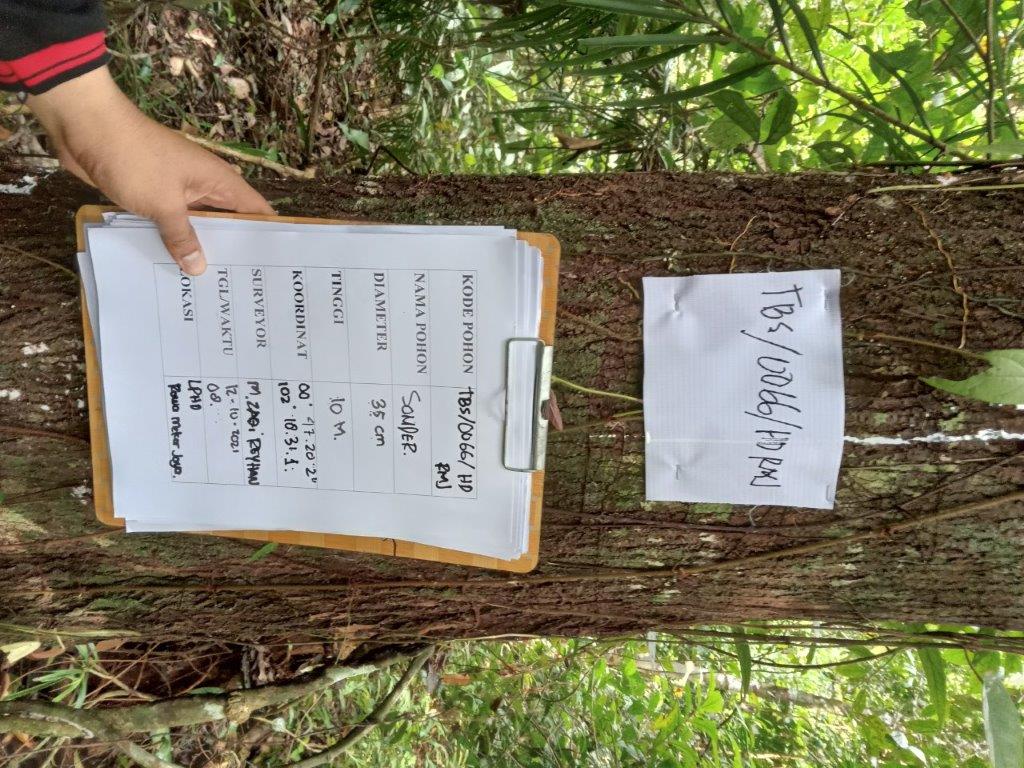 TBS/0066/HDRMJ
KODE POHON TBS/0066/ HD
RMJ
NAMA POHON SONDER.
DIAMETER 35 cm
TINGGI 10 M.
KOORDINAT 00° 47.20.2"
102° 18.31.1.
SURVEYOR M. ZAQI REYHAN
TGL/WAKTU 12-10-2021
08.
LOKASI LPHD
Rawa Mekar Jaya.